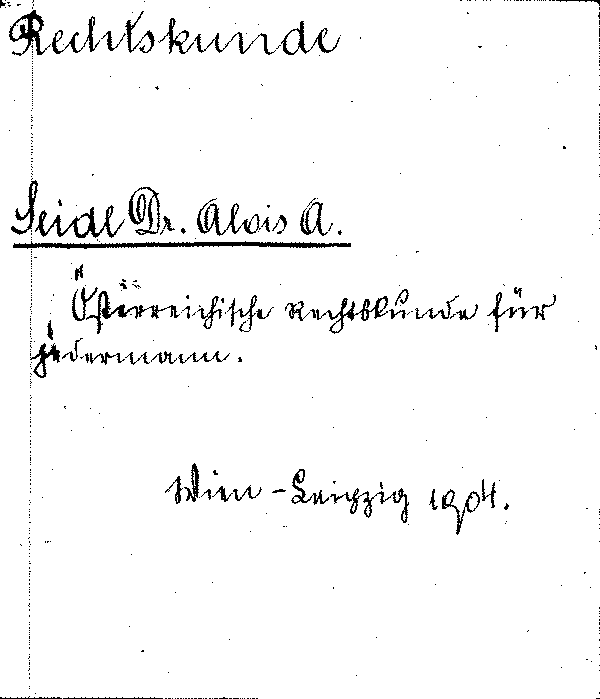 Rechtskunde
Seidl Dr. Alois A.
Österreichische Rechtskunde für
jedermann.
Wien - Leipzig 1904.